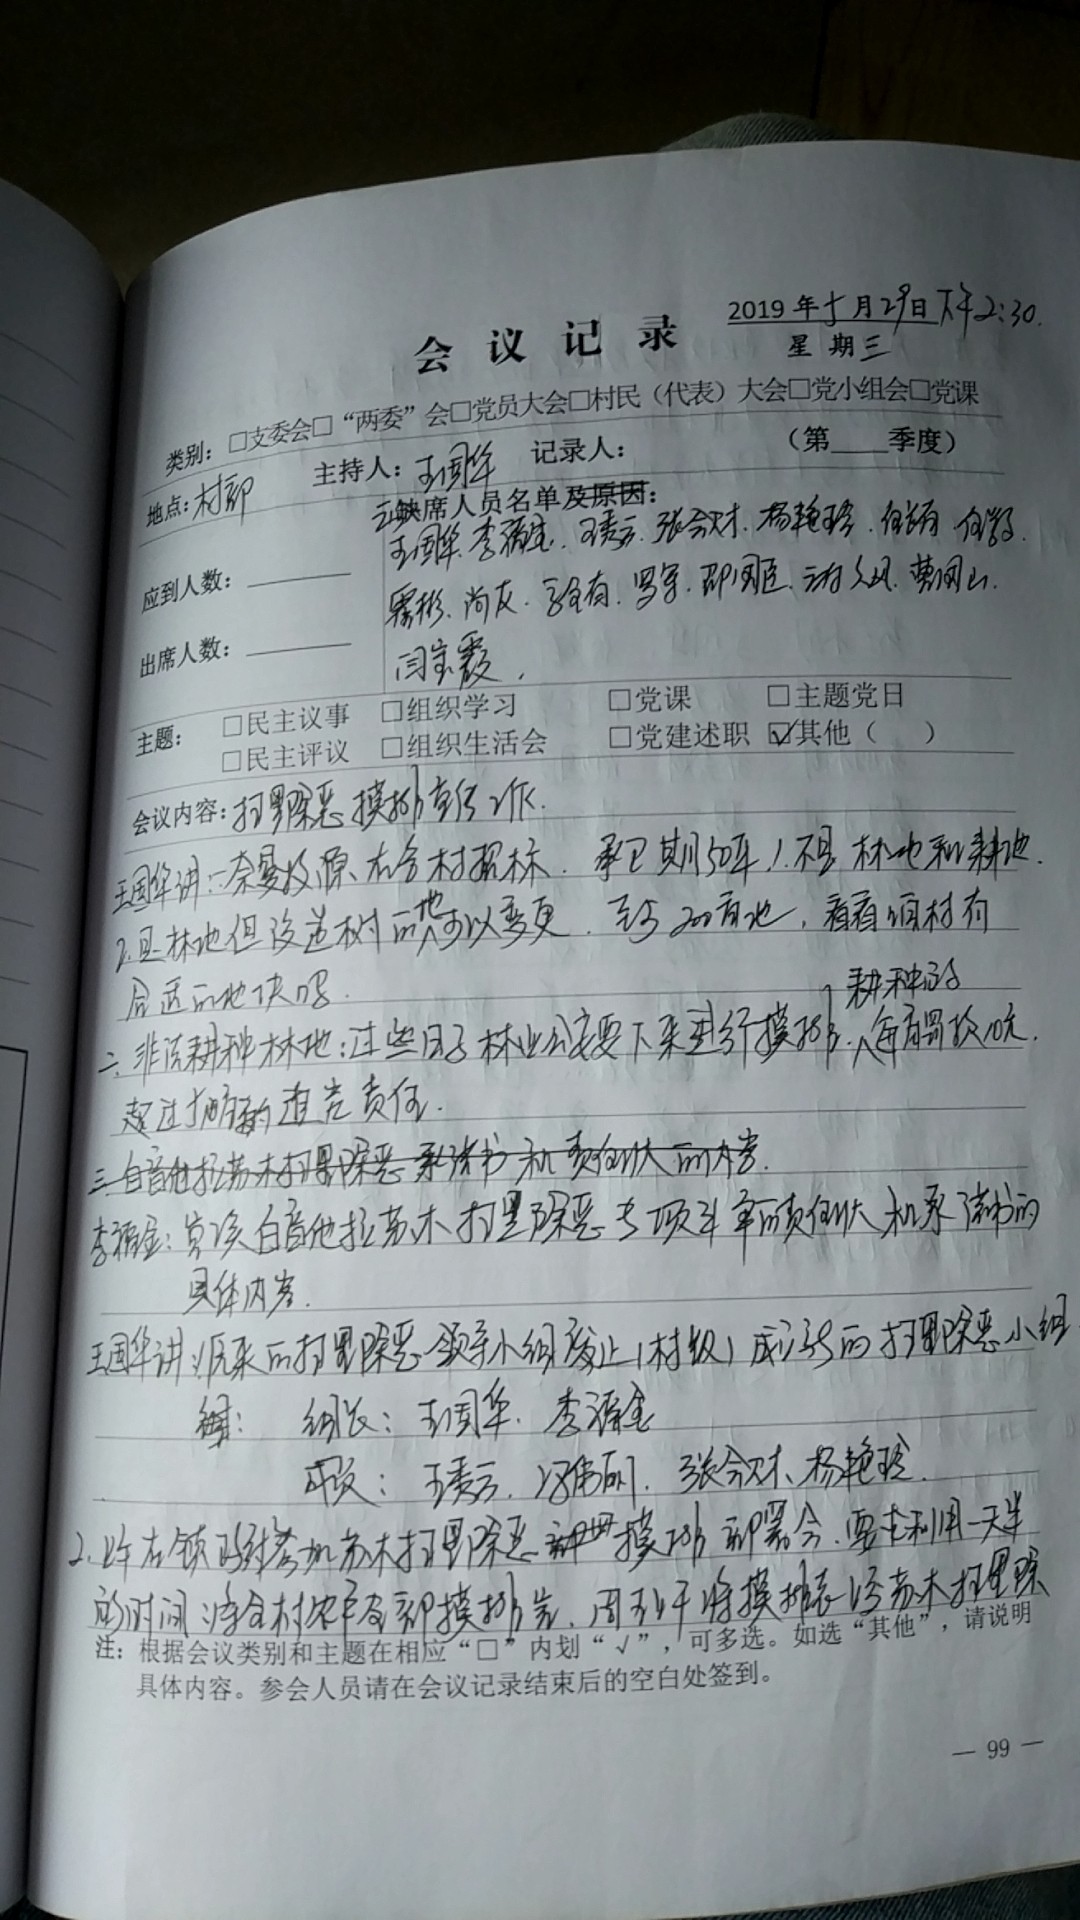 会议记录
2019年5月29日下午2:30.
星期三
类别：□支委会□“两委”会□党员大会□村民（代表）大会□党小组会□党课
地点：村部 主持人：王国华 记录人： （第 季度）
缺席人员名单及原因：
应到人数：
王国华. 李福金. 王秀云. 张会财. 杨艳玲.
出席人数：
闫宝霞.
主题： □民主议事 □组织学习 □党课 □主题党日
□民主评议 □组织生活会 □党建述职 ☑其他（ ）
会议内容：扫黑除恶摸排宣传工作.
王国华讲：一.奈曼 在各村招标. 承包期50年！.不是林地和耕地.
2.是林地但没造树的地可以变更. 至少200亩地，看看咱村有
合适的地块吗.
耕种的
二.非法耕种林地：这些日子林业公安要下来进行摸排.每亩罚款10元.
超过 追究责任.
三.白音他拉苏木扫黑除恶承诺书和责任状的内容.
李福金：宣读白音他拉苏木扫黑除恶专项斗争的责任状和承诺书的
具体内容.
王国华讲：1.原来的扫黑除恶领导小组废止（村级）成立新的扫黑除恶小组
组长：王国华. 李福金
成员：王秀云. 张会财、杨艳玲.
2.上午在镇 参加苏木扫黑除恶摸排部署会.要求利用一天半
的时间将全村农户全部摸排完. 周五上午将摸排表 苏木扫黑除
注：根据会议类别和主题在相应“□”内划“√”，可多选。如选“其他”，请说明
具体内容。参会人员请在会议记录结束后的空白处签到。
— 99 —